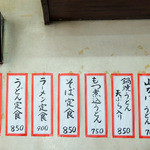 山かけうどん
鍋焼うどん
天ぷら入り
850
もつ煮込うどん
750
そば定食
850
ラーメン定食
900
うどん定食
850